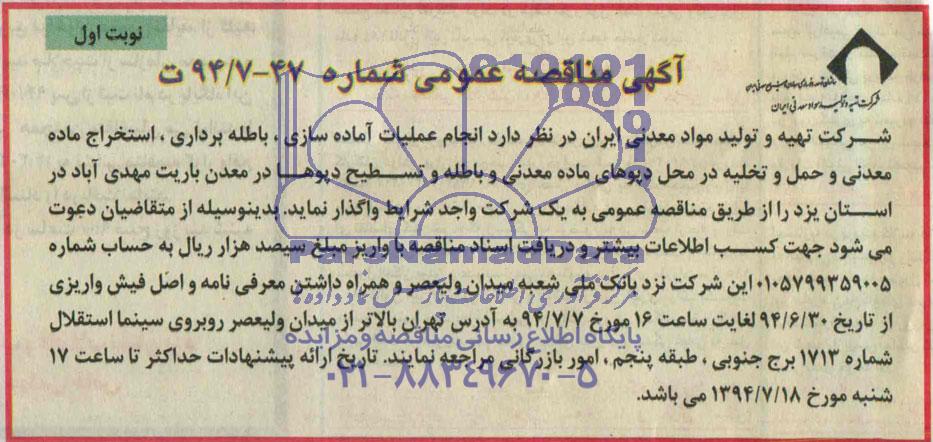 نوبت اول
آگهی مناقصه عمومی شماره ۴۷-۹۴/۷ ت
شرکت تهیه و تولید مواد معدنی ایران
شرکت تهیه و تولید مواد معدنی ایران در نظر دارد انجام عملیات آماده سازی ، باطله برداری ، استخراج ماده
معدنی و حمل و تخلیه در محل دپوهای ماده معدنی و باطله و تسطیح دپوها در معدن باریت مهدی آباد در
استان یزد را از طریق مناقصه عمومی به یک شرکت واجد شرایط واگذار نماید. بدینوسیله از متقاضیان دعوت
می شود جهت کسب اطلاعات بیشتر و دریافت اسناد مناقصه با واریز مبلغ سیصد هزار ریال به حساب شماره
ParsNamadData
۰۱۰۵۷۹۹۳۵۹۰۰۵ این شرکت نزد بانک ملی شعبه میدان ولیعصر و همراه داشتن معرفی نامه و اصل فیش واریزی
مرکز فرآوری اطلاعات پارس نماد داده ها
از تاریخ ۹۴/۶/۳۰ لغایت ساعت ۱۶ مورخ ۹۴/۷/۷ به آدرس تهران بالاتر از میدان ولیعصر روبروی سینما استقلال
پایگاه اطلاع رسانی مناقصه و مزایده
شماره ۱۷۱۳ برج جنوبی ، طبقه پنجم ، امور بازرگانی مراجعه نمایند. تاریخ ارائه پیشنهادات حداکثر تا ساعت ۱۷
۰۲۱-۸۸۳۴۹۶۷۰-۵
شنبه مورخ ۱۳۹۴/۷/۱۸ می باشد.